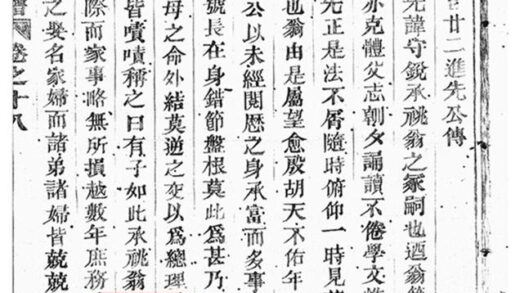 廿二進先公傳
先諱守銳承祧翁之冢嗣也迺翁
亦克體父志朝夕誦讀不倦學文
先正是法不屑隨時俯仰一時見
也翁由是屬望愈殷胡天不佑年
公以未經閱歷之身承富而多事
號長在身錯節盤根莫此爲甚乃
母之命外結莫逆之交以爲總理
皆嘖嘖稱之曰有子如此承祧翁
際而家事略無所損越數年庶務
之娶名家婦而諸弟諸婦皆兢兢
譜 卷之十八